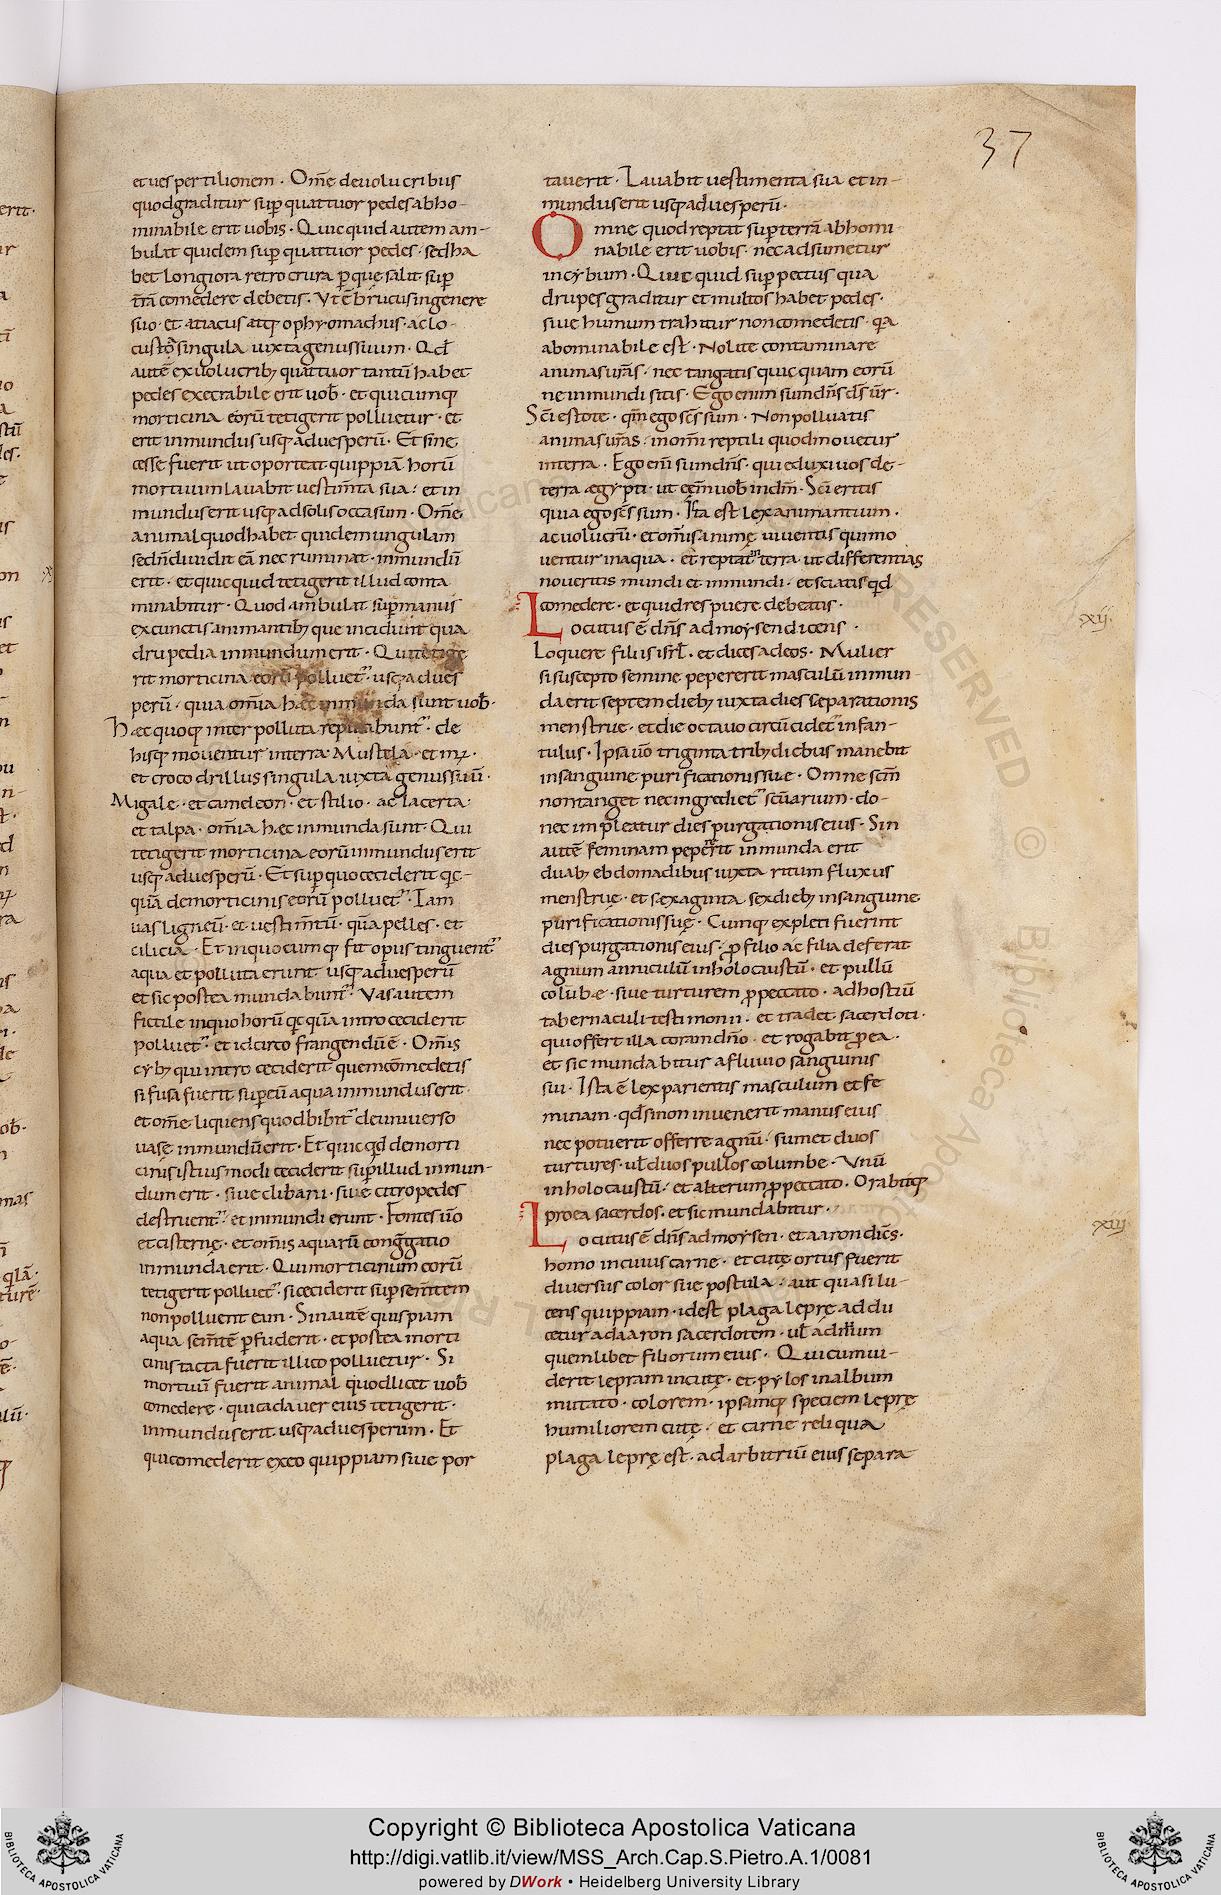 37
et uespertilionem · Om̅e deuolucribus
quodgraditur sup̅ quattuor pedes abho-
minabile erit uobis · Quicquid autem am-
bulat quidem sup̅ quattuor pedes · sedha
bet longiora retro crura p̲ que salit sup̅
tr̅a comedere debetis · Vt e̅ brucus ingenere
suo · et attacus atq; ophyomachus · ac lo-
custa singula iuxta genus suum · Qd̅
aute̅ ex uolucrib; quattuor tantu̅ habet
pedes execrabile erit uob̅ · et quicumq;
morticina eoru̅ tetigerit polluetur · et
erit inmundus usq; aduesperu̅ · Et sine
cesse fuerit ut oporteat quippia̅ horu̅
mortuum lauabit uestim̅ta sua · et in
mundus erit usq; ad solis occasum · Om̅e
animal quodhabet quidem ungulam
sed n̅ diuidit ea̅ nec ruminat · inmundu̅
erit · et quicquid tetigerit illud conta
minabitur · Quod ambulat sup̅ manus
excunctis animantib; que incidunt qua
drupedia inmundum erit · Qui tetige
rit morticina eoru̅ polluet᷑ · usq; adues
peru̅ · quia om̅ia hæc inmunda sunt uob̅ ·
Hæc quoq; inter polluta reputabunt᷑ · de
hisq; mouentur interra · Mustela · et mus ·
et crocodrillus singula iuxta genus suu̅ ·
Migale · et cameleon · et stilio · ac lacerta ·
et talpa · om̅ia hæc inmunda sunt · Qui
tetigerit morticina eoru̅ inmundus erit
usq; aduesperu̅ · Et sup̅ quo ceciderit qc̅-
qua̅ demorticinis eoru̅ polluet᷑ · Tam
uas ligneu̅ · et uestim̅tu̅ · qua̅ pelles · et
cilicia · Et inquocumq; fit opus tinguent᷑
aqua et polluta erunt usq; aduesperu̅
et sic postea mundabunt᷑ · Vas autem
fictile inquo horu̅ qc̅ qua̅ intro ceciderit
polluet᷑ · et idcirco frangendu̅ e̅ · Om̅is
cyb; qui intro ceciderit quem com̅edetis
si fusa fuerit sup̅ eu̅ aqua inmundus erit ·
et om̅e liquens quod bibit᷑ deuniuerso
uase inmundu̅ erit · Et quicqd̅ demorti
cinis istiusmodi ceciderit sup̅ illud inmun-
dum erit · siue clibani · siue citropedes
destruent᷑ · et inmundi erunt · Fontes u̅o
et cisterne̜ · et om̅is aquaru̅ congregatio
inmunda erit · Qui morticinum eoru̅
tetigerit polluet᷑ · si ceciderit sup̅ sem̅tem
non polluent eam · Sin aute̅ quispiam
aqua sem̅te̅ p̲fuderit · et postea morti
cinis tacta fuerit illico polluetur · Si
mortuu̅ fuerit animal quodlicet uob̅
comedere · qui cadauer eius tetigerit ·
inmundus erit usq; aduesperum · Et
qui comederit exeo quippiam siue por
tauerit · Lauabit uestimenta sua et in-
mundus erit usq; aduesperu̅ ·
Omne quod reptat sup̅ terra̅ abhomi-
nabile erit uobis · nec adsumetur
incybum · Quicquid sup̅ pectus qua
drupes graditur et multos habet pedes ·
siue humum trahitur non comedetis · qa
abominabile est · Nolite contaminare
animas ur̅as · nec tangatis quicquam eoru̅
ne inmundi sitis · Ego enim sum dn̅s ds̅ ur̅ ·
Sc̅i estote · qm̅ ego sc̅s sum · Non polluatis
animas ur̅as · inom̅i reptili quodmouetur
interra · Ego eni̅ sum dn̅s · qui eduxi uos de-
terra ægypti · ut eem̅ uob̅ indm̅ · Sc̅i eritis
quia ego sc̅s sum · Ista est lex animantium ·
ac uolucru̅ · et om̅is anime̜ uiuentis quimo
uentur inaqua · et reptat interra · ut differentias
noueritis mundi et inmundi · et sciatis qd̅
comedere · et quid respuere debeatis ·
Locutus e̅ dn̅s ad moysen dicens ·
Loquere filiis isrl̅ · et dices ad eos · Mulier
si suscepto semine pepererit masculu̅ inmun-
da erit septem dieb; iuxta dies separationis
menstrue · et die octauo circu̅cidet᷑ infan-
tulus · Ipsa u̅o triginta trib; diebus manebit
insanguine purificationis sue · Omne sc̅m
non tanget nec ingrediet᷑ sc̅uarium · do-
nec impleatur dies purgationis eius · Sin
aute̅ feminam pepererit inmunda erit
duab; ebdomadibus iuxta ritum fluxus
menstrue̜ · et sexaginta sex dieb; insanguine
purificationis sue̜ · Cumq; expleti fuerint
dies purgationis eius · p̲ filio ac filia deferat
agnum anniculu̅ inholocaustu̅ · et pullu̅
colu̅bæ · siue turturem p̲peccato · ad hostiu̅
tabernaculi testimonii · et tradet sacerdoti ·
qui offert illa coram dn̅o · et rogabit p̲ ea ·
et sic mundabitur a fluuio sanguinis
sui · Ista e̅ lex parientis masculum et fe
minam · qd̅ si non inuenerit manus eius
nec potuerit offerre agnu̅ · sumet duos
turtures · ul̅ duos pullos columbe · Vnu̅
inholocaustu̅ · et alterum p̲peccato · Orabitq;
pro ea sacerdos · et sic mundabitur ·
Locutus e̅ dn̅s ad moysen · et aaron dice̅s ·
homo incuius carne · et cute̜ ortus fuerit
diuersus color siue postula · aut quasi lu-
cens quippiam · idest plaga lepre̜ addu
cetur ad aaron sacerdotem · ul̅ ad unum
quemlibet filiorum eius · Qui cum ui-
derit lepram incute̜ · et pylos inalbum
mutato · colorem · ipsamq; speciem lepre̜
humiliorem cute̜ · et carne reliqua
plaga lepre̜ est · ad arbitriu̅ eius separa
xii
xiii
Copyright © Biblioteca Apostolica Vaticana
http://digi.vatlib.it/view/MSS_Arch.Cap.S.Pietro.A.1/0081
powered by DWork • Heidelberg University Library
BIBLIOTECA APOSTOLICA VATICANA
BIBLIOTECA APOSTOLICA VATICANA